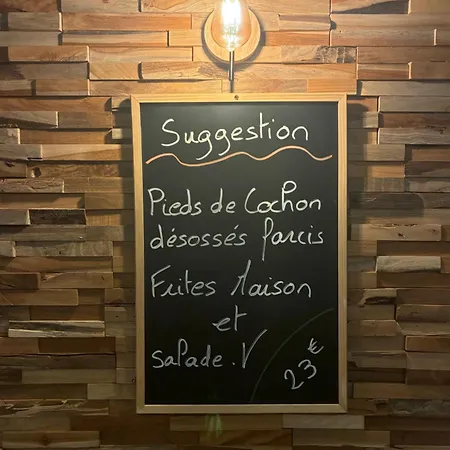 Suggestion
Pieds de Cochon
désossés farcis
Frites Maison
et
salade. V
23€